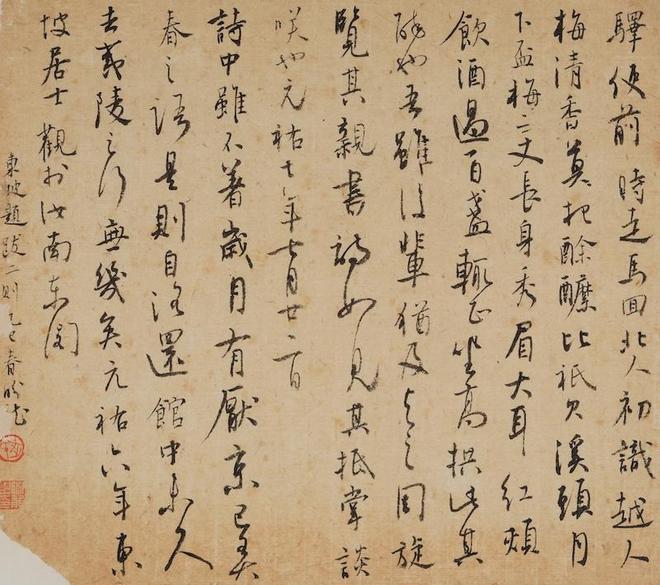 驛使前時走馬回北人初識越人
梅清香莫把酴醿比祇欠溪頭月
下盃梅二丈長身秀眉大耳紅頰
飲酒過百盞輒正坐高拱此其
醉也吾雖後輩猶及与之周旋
覽其親書詩如見其抵掌談
咲也元祐七年七月廿二日
詩中雖不著歲月有厭京已
春之語是則自洛還館中未久
去夷陵之行無幾矣元祐六年東
坡居士觀於汝南東閣
東坡題跋二則 乙巳春